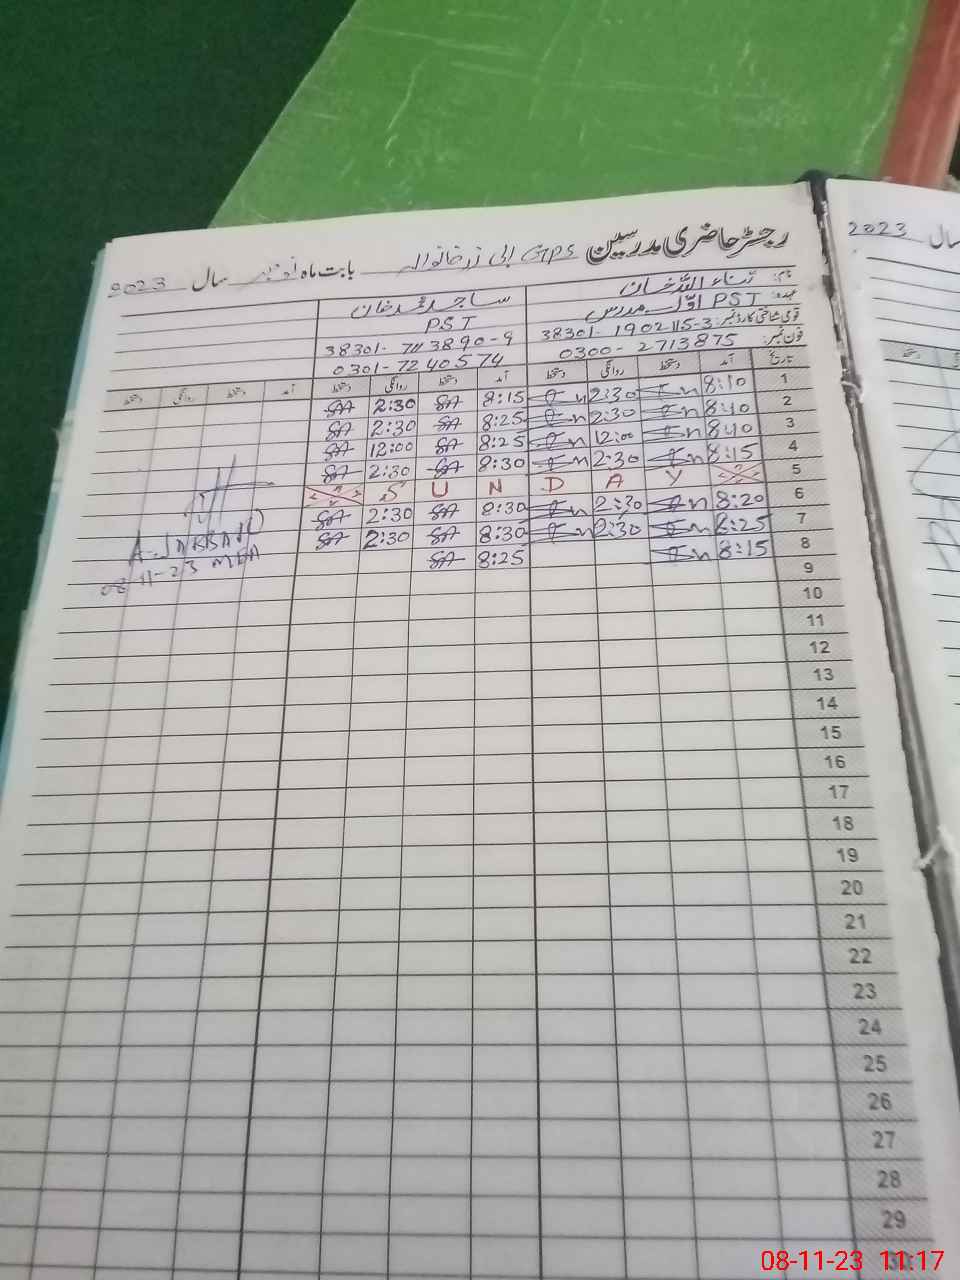 رجسٹر حاضری مدرسین GPS ابی زر خانوالہ بابت ماہ نومبر سال 2023
نام: ثناء اللہ خان ساجد محمد خان
عہدہ: PST اول مدرس PST
قومی شناختی کارڈ نمبر: 38301-1902115-3 38301-7113890-9
فون نمبر: 0300-2713875 0301-7240574
تاریخ آمد دستخط روانگی دستخط آمد دستخط روانگی دستخط آمد دستخط روانگی دستخط
1 8:10 2:30 8:15 SA 2:30 SA
2 8:40 2:30 8:25 SA 2:30 SA
3 8:40 12:00 8:25 SA 12:00 SA
4 8:15 2:30 8:30 SA 2:30 SA
5 S U N D A Y
6 8:20 2:30 8:30 SA 2:30 SA
7 8:25 2:30 8:30 SA 2:30 SA
8 8:15 8:25 SA
9
10
11
12
13
14
15
16
17
18
19
20
21
22
23
24
25
26
27
28
29
A-JABBAR
08-11-23 MEA
سال 2023
دستخط
08-11-23 11:17